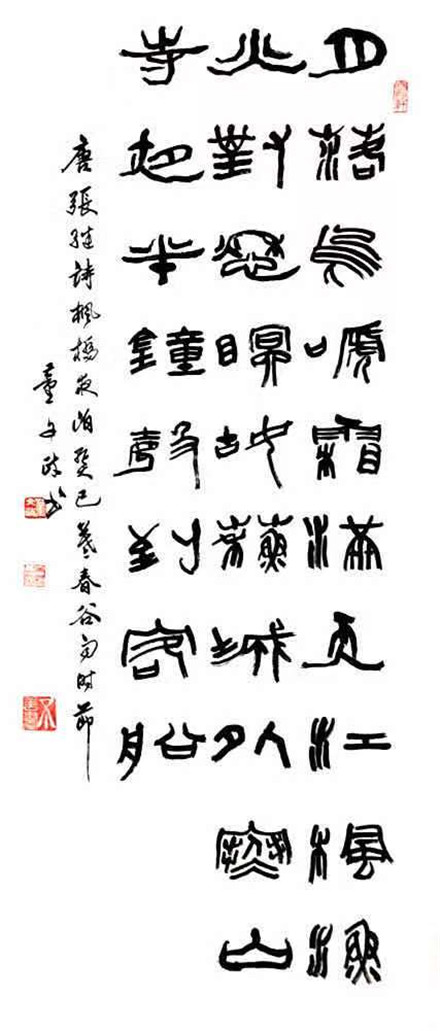 月落烏嗁霜滿天江楓漁
火對愁眠姑蘇城外寒山
寺夜半鐘聲到客船
唐張继詩楓橋夜泊癸巳暮春谷雨时節
董文